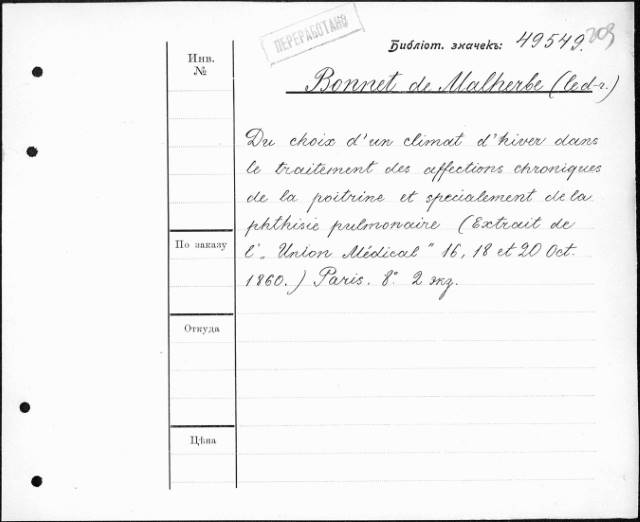 ПЕРЕРАБОТАНО
Библіот. значекъ: 49549.
Инв.
№
Bonnet de Malherbe (le d-r.)
Du choix d'un climat d'hiver dans
le traitement des affections chroniques
de la poitrine et specialement de la
phthisie pulmonaire (Extrait de
По заказу
l'„Union Médical" 16, 18 et 20 Oct.
1860.) Paris. 8°. 2 экз.
Откуда
Цѣна